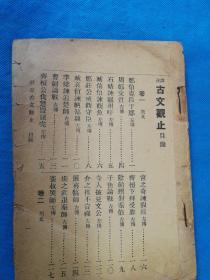 古文觀止目錄
卷一 周文
鄭伯克段于鄢 左傳 一
周鄭交質 左傳 四
石碏諫寵州吁 左傳 五
臧僖伯諫觀魚 左傳 六
鄭莊公戒飭守臣 左傳 八
臧哀伯諫納郜鼎 左傳
季梁諫追楚師 左傳
曹劌論戰 左傳
齊桓公伐楚盟屈完 左傳 一五
宮之奇諫假道 左傳
齊桓下拜受胙 左傳
陰飴甥對秦伯 左傳
子魚論戰 左傳
寺人披見文公 左傳
介之推不言祿 左傳
展喜犒師 左傳
燭之武退秦師 左傳
蹇叔哭師 左傳
卷二 周文
古文觀止 目錄